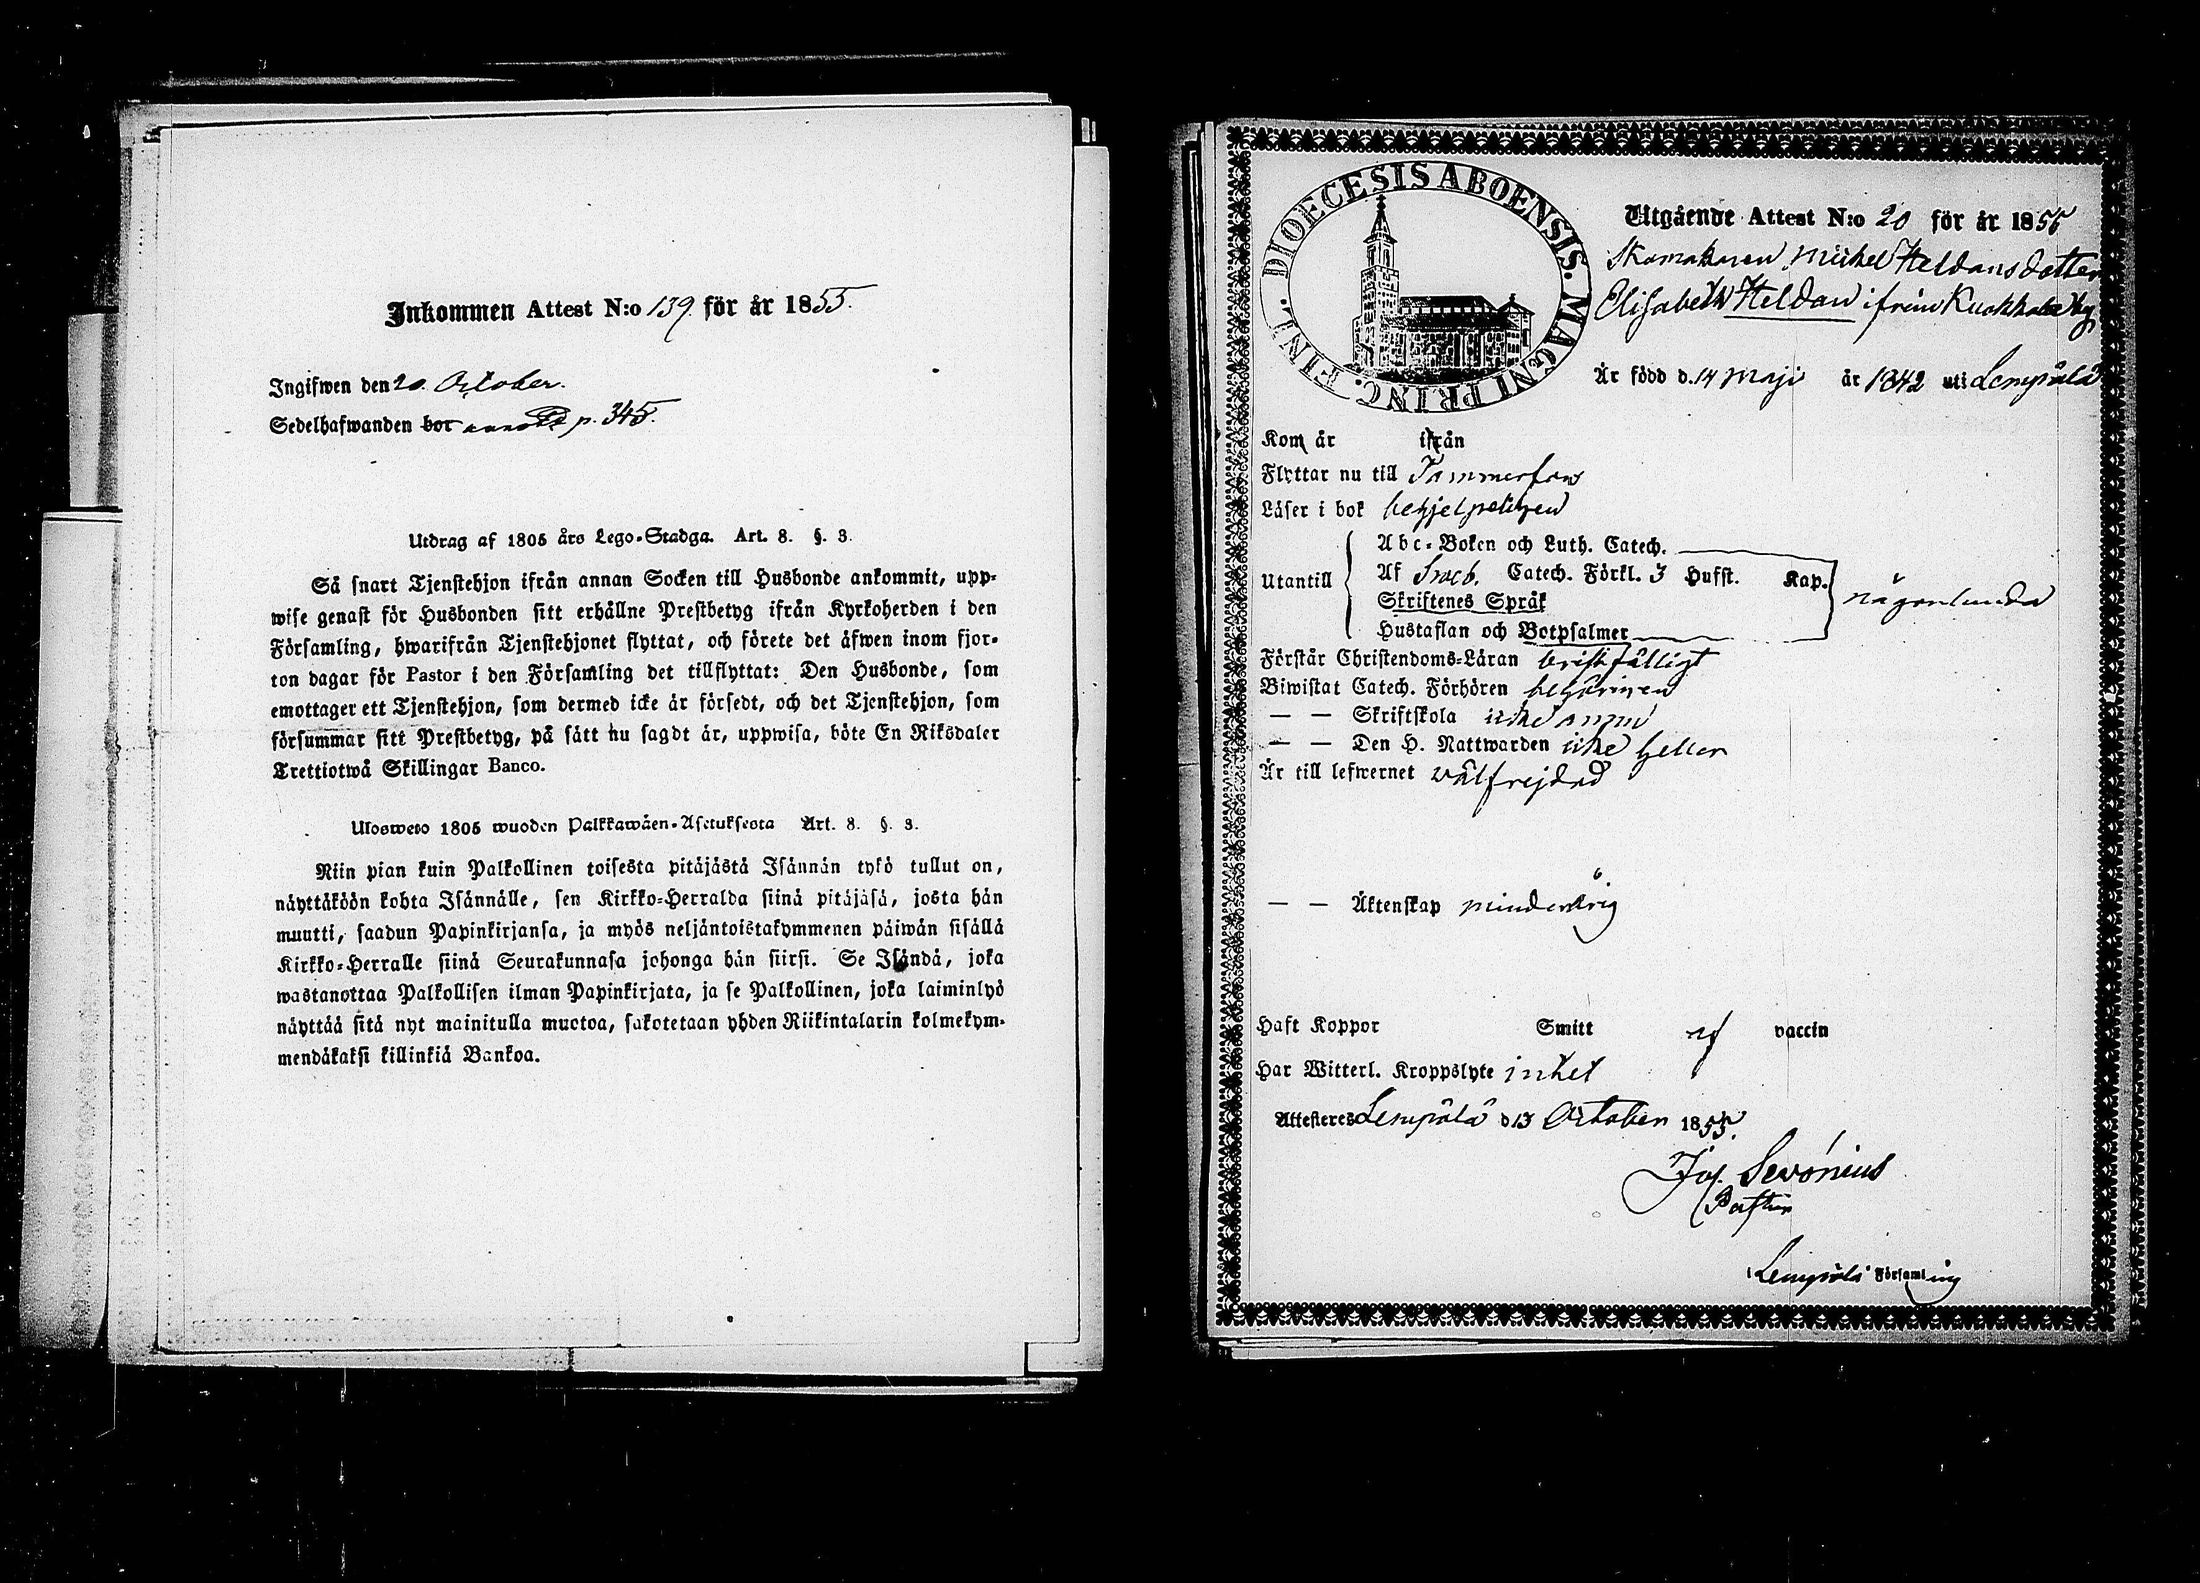 Inkommen Attest N:o 139. för år 1855.
Ingifwen den 20. October.
Sedelhafwanden bor p. 345.
Utdrag af 1805 års Lego-Stadga. Art. 8. §. 3.
Så snart Tjenstehjon ifrån annan Socken till Husbonde ankommit, upp-
wise genast för Husbonden sitt erhållne Prestbetyg ifrån Kyrkoherden i den
Församling, hwarifrån Tjenstehjonet flyttat, och förete det äfwen inom fjor-
ton dagar för Pastor i den Församling det tillflyttat: Den Husbonde, som
emottager ett Tjenstehjon, som dermed icke är försedt, och det Tjenstehjon, som
försummar sitt Prestbetyg, på sätt nu sagdt är, uppwisa, böte En Riksdaler
Trettiotwå Skillingar Banco.
Ulosweto 1805 wuoden Palkkawäen-Asetuksesta Art. 8. §. 3.
Niin pian kuin Palkollinen toisesta pitäjästä Isännän tykö tullut on,
näyttäköön kohta Isännälle, sen Kirkko-Herralda siinä pitäjäsä, josta hän
muutti, saadun Papinkirjansa, ja myös neljäntoistakymmenen päiwän sisällä
Kirkko-Herralle siinä Seurakunnasa johonga hän siirsi. Se Isändä, joka
wastanottaa Palkollisen ilman Papinkirjata, ja se Palkollinen, joka laiminlyö
näyttää sitä nyt mainitulla muotoa, sakotetaan yhden Riikintalarin kolmekym-
mendäkaksi killinkiä Bankoa.
DIOECESIS ABOENSIS. MAGNI PRINC. FINL.
Utgående Attest N:o 20 för år 1855
Skomakaren Michel Heldans dotter
Elisabeth Heldan ifrån Kuokkala by
Är född d. 14 Maji år 1842 uti Lempälä
Kom år ifrån
Flyttar nu till Tammerfors
Läser i bok behjelpeligen
Abc-Boken och Luth. Catech.
Utantill Af Sveb. Catech. Förkl. 3 Hufst. Kap. någorlunda
Skriftenes Språk
Hustaflan och Botpsalmer
Förstår Christendoms-Läran bristfälligt
Biwistat Catech. Förhören behörigen
— — Skriftskola icke ännu
— — Den H. Nattwarden icke heller
Är till lefwernet välfrejdad
— — Äktenskap minderårig
Haft Koppor Smitt af vaccin
Har Witterl. Kroppslyte intet
Attesteres Lempälä d 13 October 1855.
Joh. Sevónius
Pastor
i Lempälä Församling